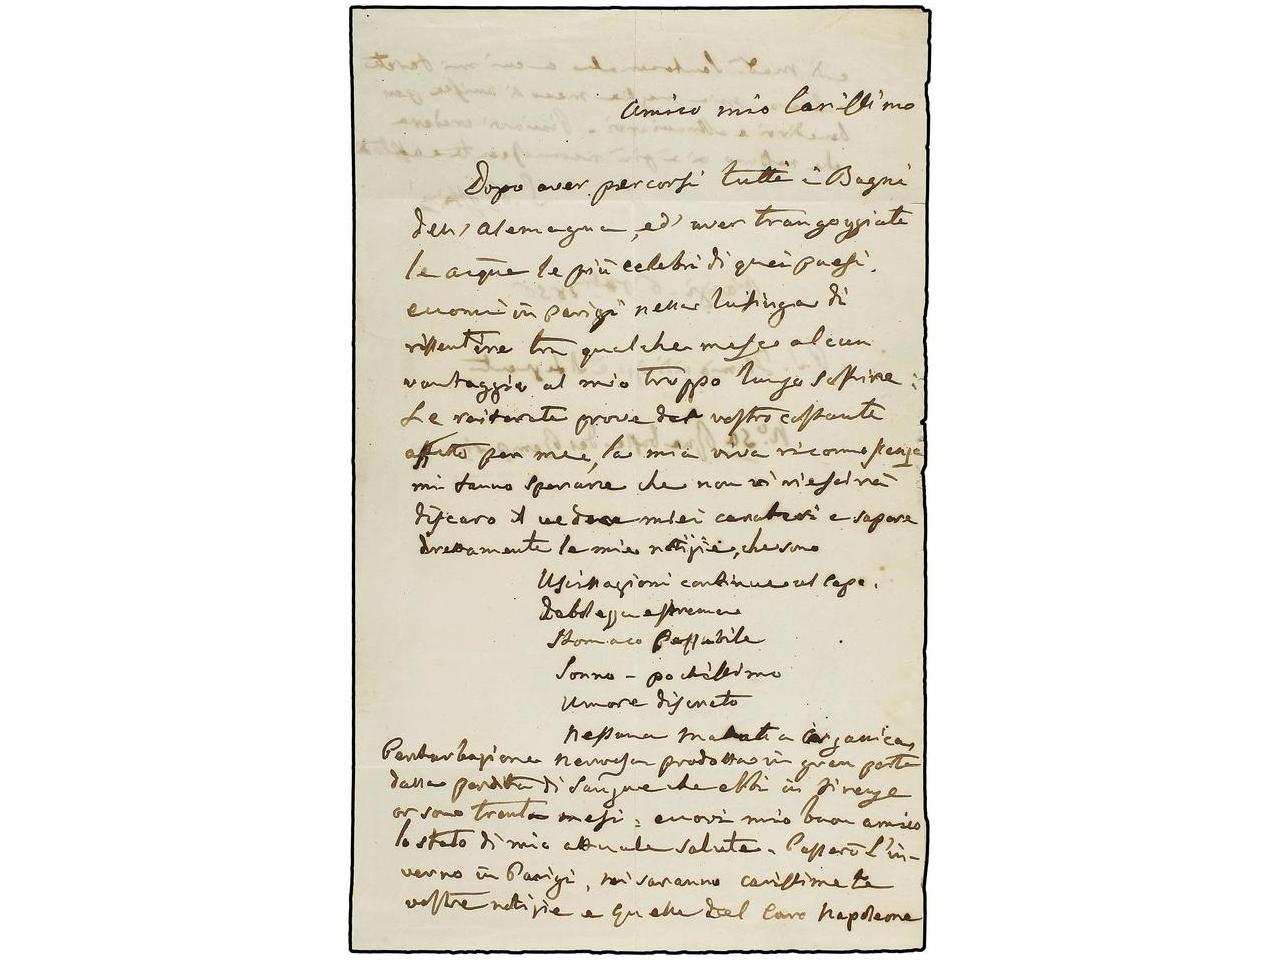 Amico mio Carissimo
Dopo aver percorsi tutti i Bagni
dell'Alemagna, ed' aver trangoggiate
le acque le più celebri di quei paesi.
eccomi in Parigi nella lusinga di
rissentire tra qualche mese alcun
vantaggio al mio troppo lungo soffrire:
Le reiterate prove del vostro costante
affetto per me, la mia viva riconnoscenza
mi fanno sperare che non vi riescirà
discaro il vedere miei caratteri e sapere
direttamente le mie notizie, che sono
continue al Capo.
Debolezza estrema
Stomaco Passabile
Sonno - pochissimo
Umore discreto
Nessuna malattia organica,
Perturbazione nervosa prodotta in gran parte
dalla perdita di Sangue che ebbi in Firenze
or sono trenta mesi: eccovi mio buon amico
lo stato di mia attuale salute. Passerò L'in-
verno in Parigi, mi saranno carissime le
vostre notizie e quelle del Caro Napoleone